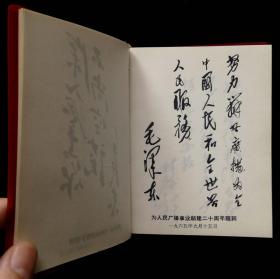 努力辦好廣播为全
中國人民和全世界
人民服務
毛澤东
为人民广播事业创建二十周年题词
一九六五年九月十五日